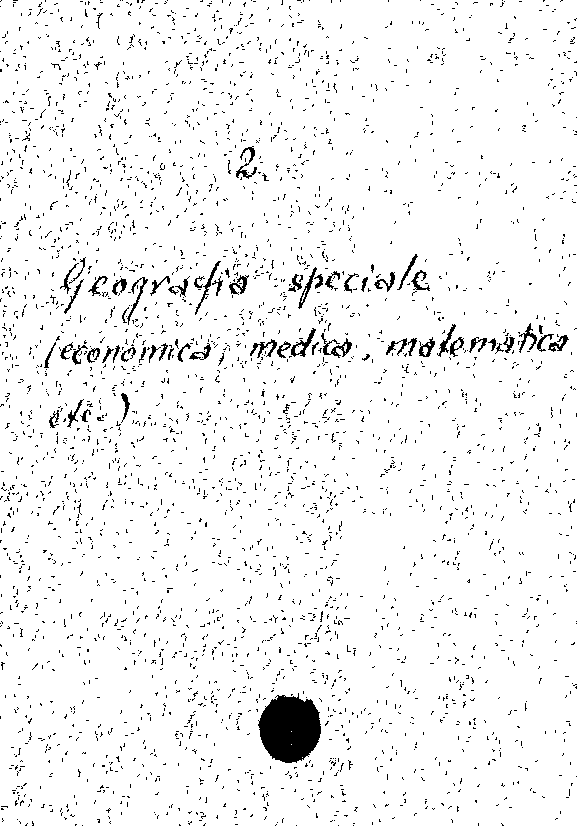 2.
Geografia speciale
(economica, medica, matematica
etc.)